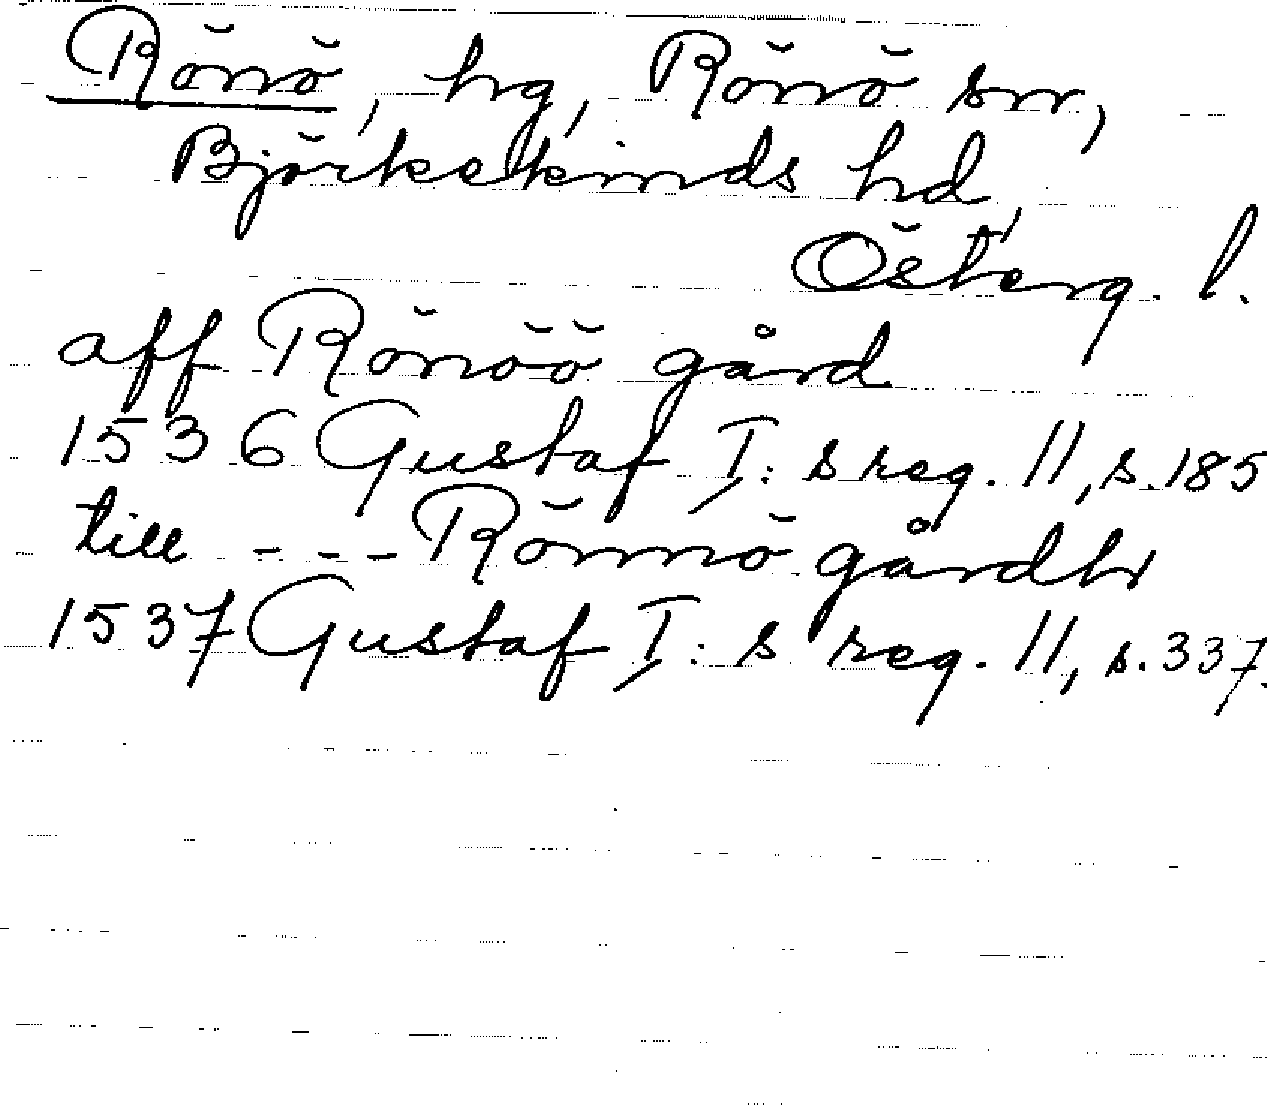 Rönö, hg, Rönö sn,
Björkekinds hd,
Österg. l.
aff Rönöö gård
1536 Gustaf I:s reg. 11, s. 185
till --- Rönnö gårdh
1537 Gustaf I:s reg. 11, s. 337.